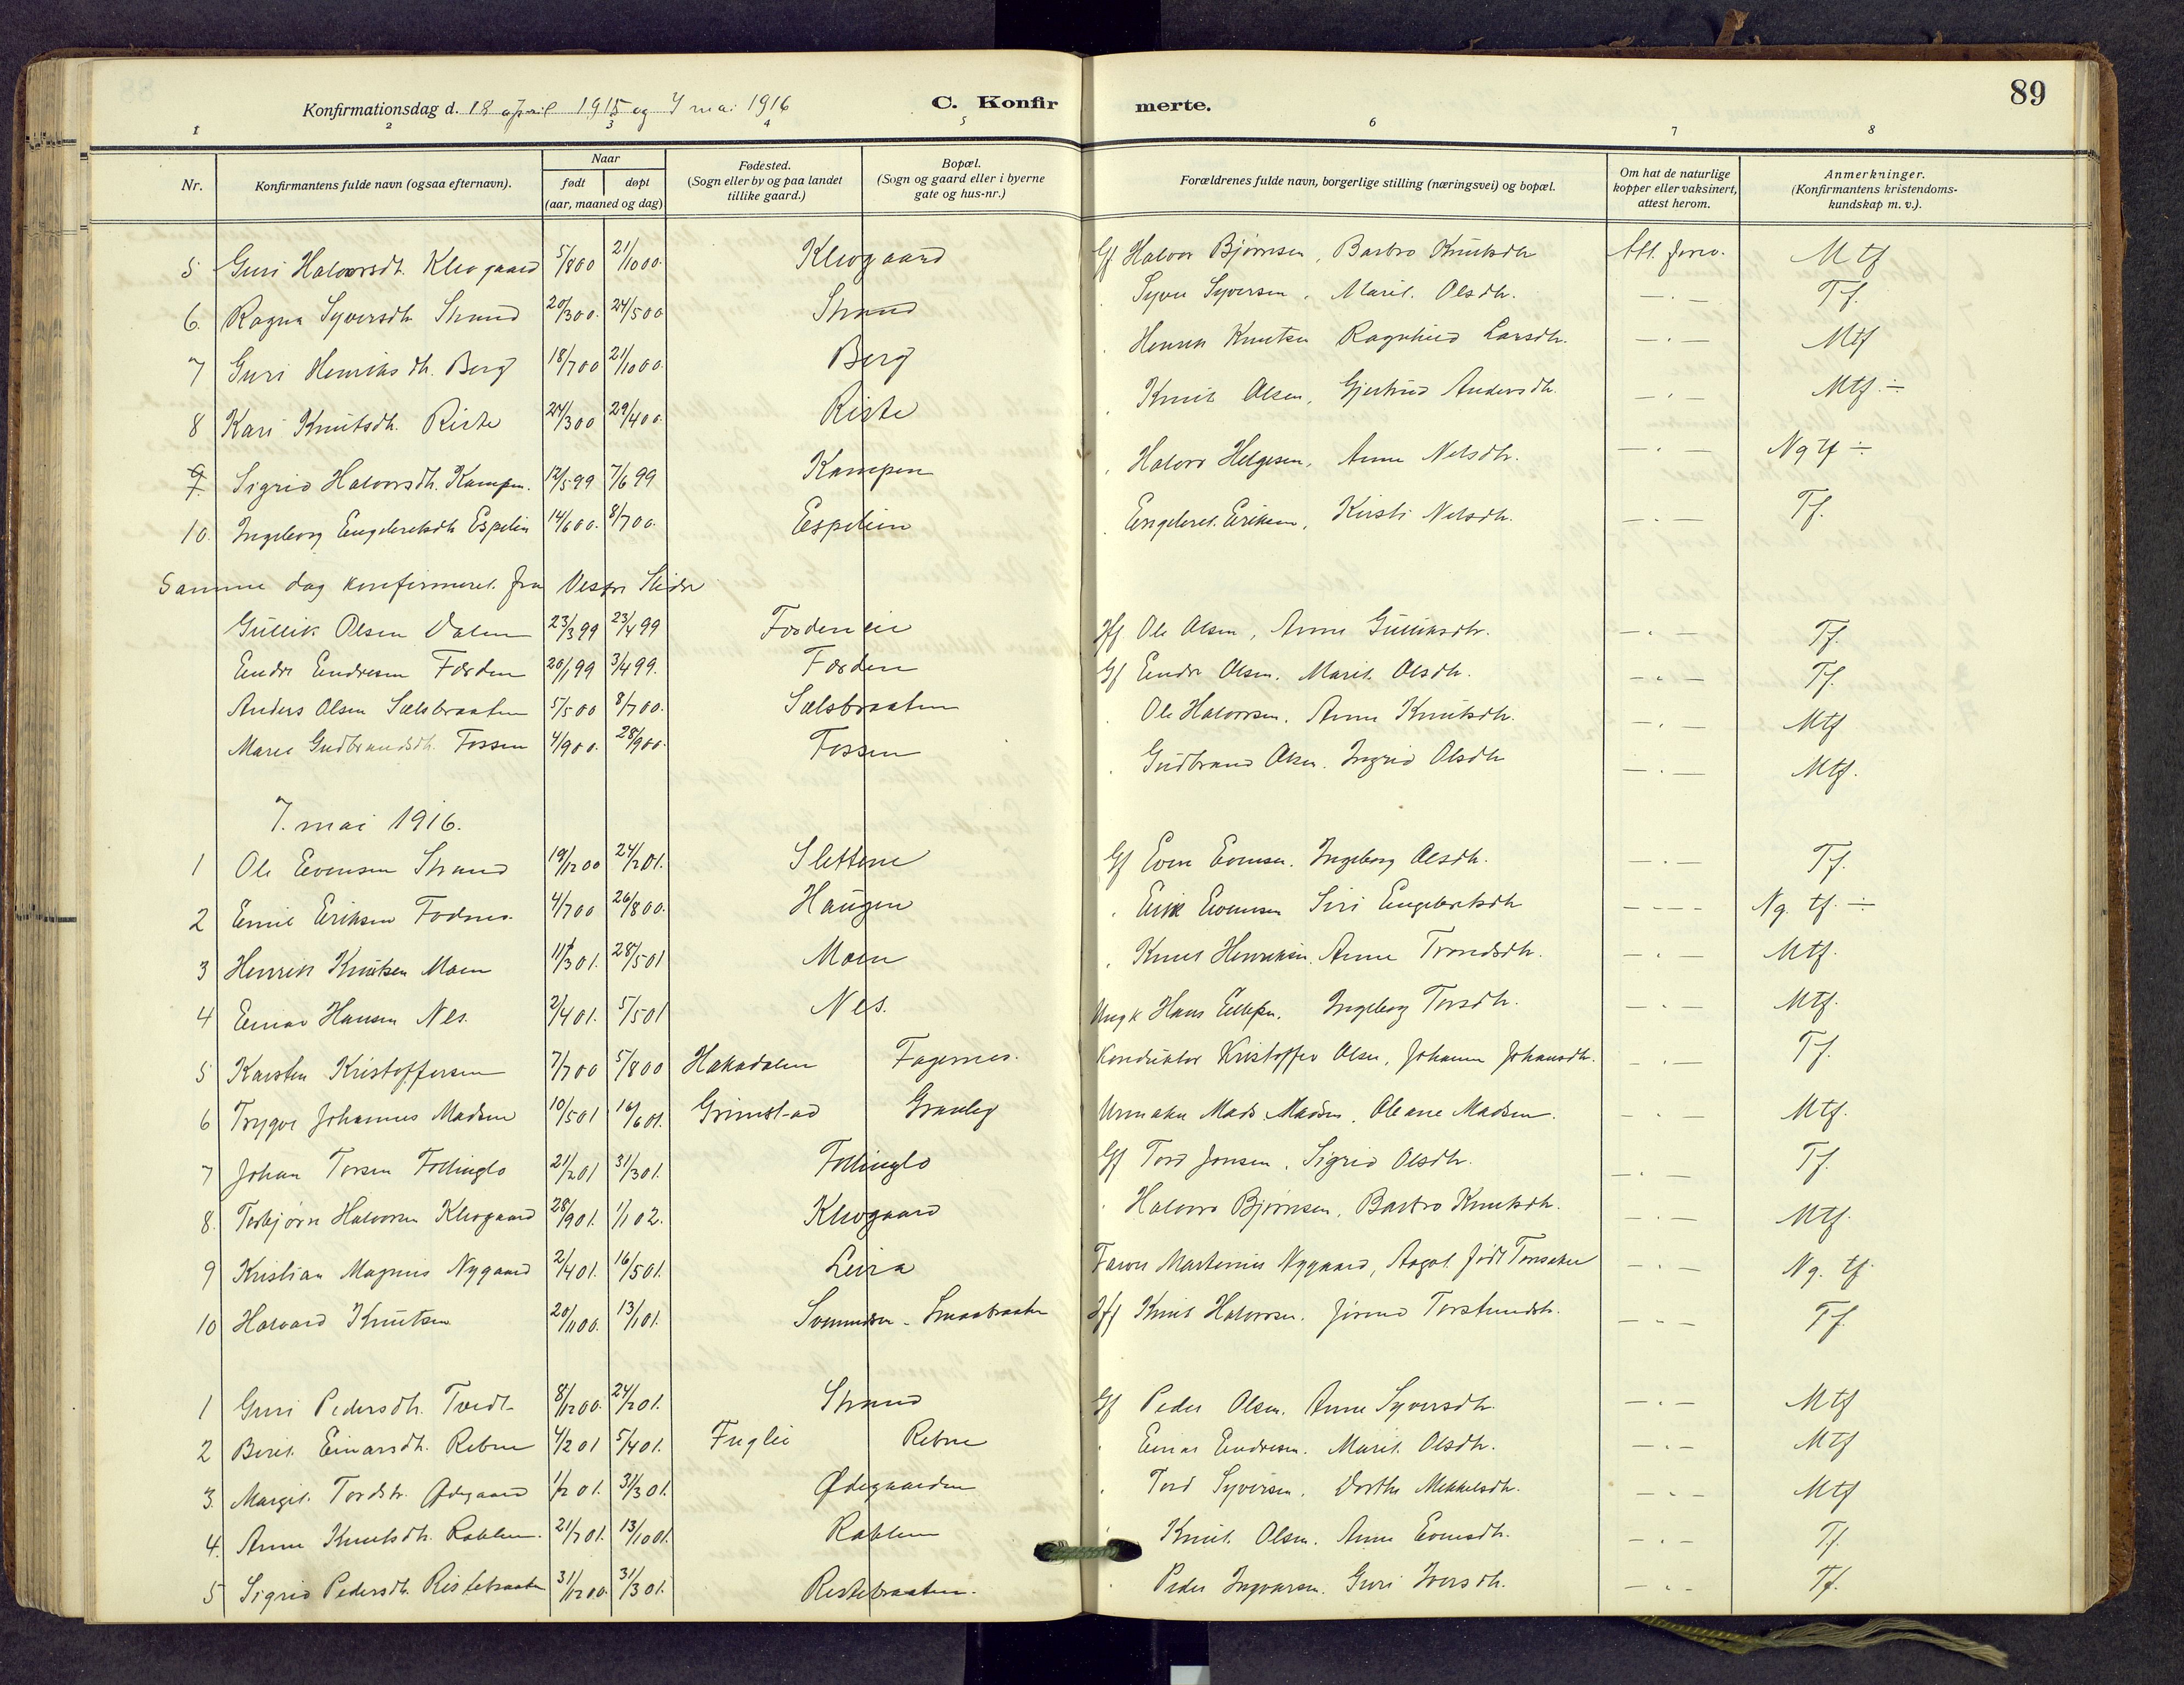 Konfirmationsdag d. 18 april 1915 og 7 mai 1916 C. Konfir merte. 89
1 2 3 4 5 6 7 8
Nr. Konfirmantens fulde navn (ogsaa efternavn). Naar født døpt (aar, maaned og dag) Fødested. (Sogn eller by og paa landet tillike gaard.) Bopæl. (Sogn og gaard eller i byerne gate og hus-nr.) Forældrenes fulde navn, borgerlige stilling (næringsvei) og bopæl. Om hat de naturlige kopper eller vaksinert, attest herom. Anmerkninger. (Konfirmantens kristendoms-kundskap m. v.).
5 Guri Halvorsdt. Klevgaard 5/800 21/1000. Klevgaard Gf Halvor Bjørnsen, Barbro Knutsdtr Att. forev. Mtf
6. Ragna Syversdtr Strand 20/300. 24/500 Strand Syver Syversen, Marit Olsdtr. — . — Tf.
7 Guri Henriksdtr. Berg 18/700 21/1000. Berg Henrik Knutsen Ragnhild Larsdtr. — . — Mtf
8 Kari Knutsdtr. Riste 24/300 29/400. Riste Knut Olsen, Gjertrud Andersdtr. — . — Mtf. ÷
9 Sigrid Halvorsdtr. Kampen. 12/599 7/699 Kampen Halvor Helgesen, Anne Nelsdtr. — . — Ng tf ÷
10. Ingeborg Engebretsdtr Espelien 14/600. 8/700. Espelien Engebret Eriksen, Kirsti Nelsdtr. — . — Tf.
Samme dag konfirmeret fra Vestre Slidre
Gullik Olsen Dalen 23/399 23/499 Fordeneie Hf Ole Olsen, Anne Gulliksdtr. — . — Tf.
Endre Endresen Førden 20/199 3/499. Førden Gf Endre Olsen. Marit Olsdtr. — . — Tf.
Anders Olsen Sælsbraaten 5/500 8/700. Sælsbraaten Ole Halvorsen. Anne Knutsdtr. — . — Mtf
Marie Gudbrandsdtr. Fossen 4/900. 28/900. Fossen Gudbrand Olsen. Ingrid Olsdtr — . — Mtf.
7. mai 1916.
1 Ole Evensen Strand 19/1200 24/201. Slettene Gf Even Evensen. Ingeborg Olsdtr. — . — Tf.
2 Emil Eriksen Fodnes. 4/700 26/800. Haugen Erik Evensen Siri Engebretsdtr — - — Ng. tf. ÷
3 Henrik Knutsen Moen 11/301. 28/501 Moen Knut Henriksen. Anne Trondsdtr. — . — Mtf.
4 Einar Hansen Nes. 2/401. 5/501 Nes. Ungk Hans Ellefsen. Ingeborg Torsdtr. — . — Mtf.
5 Karsten Kristoffersen 7/700 5/800 Hakadalen Fagernes. Konduktør Kristoffer Olsen, Johanne Johansdtr. — . — Tf.
6 Trygve Johannes Madsen 10/501 16/601. Grimstad Granley Urmaker Mads Madsen, Oleane Madsen. — . — Mtf.
7 Johan Torsen Follinglo 21/201 31/301. Follinglo Gf Tord Jonsen. Sigrid Olsdtr. — . — Tf.
8. Torbjørn Halvorsen Klevgaard 28/901. 1/102. Klevgaard Halvor Bjørnsen, Barbro Knutsdtr. — . — Mtf.
9 Kristian Magnus Nygaard 2/401. 16/501. Leira Farver Martinius Nygaard, Aagot født Tonsaker — . — Ng. tf.
10 Halvard Knutsen 20/1100. 13/101. Smaabraaten Hf Knut Halvorsen. Jørand Torsteinsdtr. — . — Tf.
1 Guri Pedersdtr. Tvedt 8/1200. 24/201. Strand Gf Peder Olsen. Anne Syversdtr. — . — Mtf
2 Berit Einarsdtr. Rebne 4/201 5/401. Fuglei Rebne Einar Endresen. Marit Olsdtr. — . — Mtf
3. Margit Tordsdtr. Ødegaard 1/201. 31/301. Ødegaarden Tord Syversen. Dorthe Mikkelsdtr. — . — Mtf
4. Anne Knutsdtr. Rablien. 21/701. 13/1001. Rablien Knut Olsen. Anne Evensdtr. — . — Tf.
5 Sigrid Pedersdtr. Ristebraaten 31/1200. 31/301. Ristebraaten. Peder Ingvarsen. Guri Iversdtr. — . — Tf.